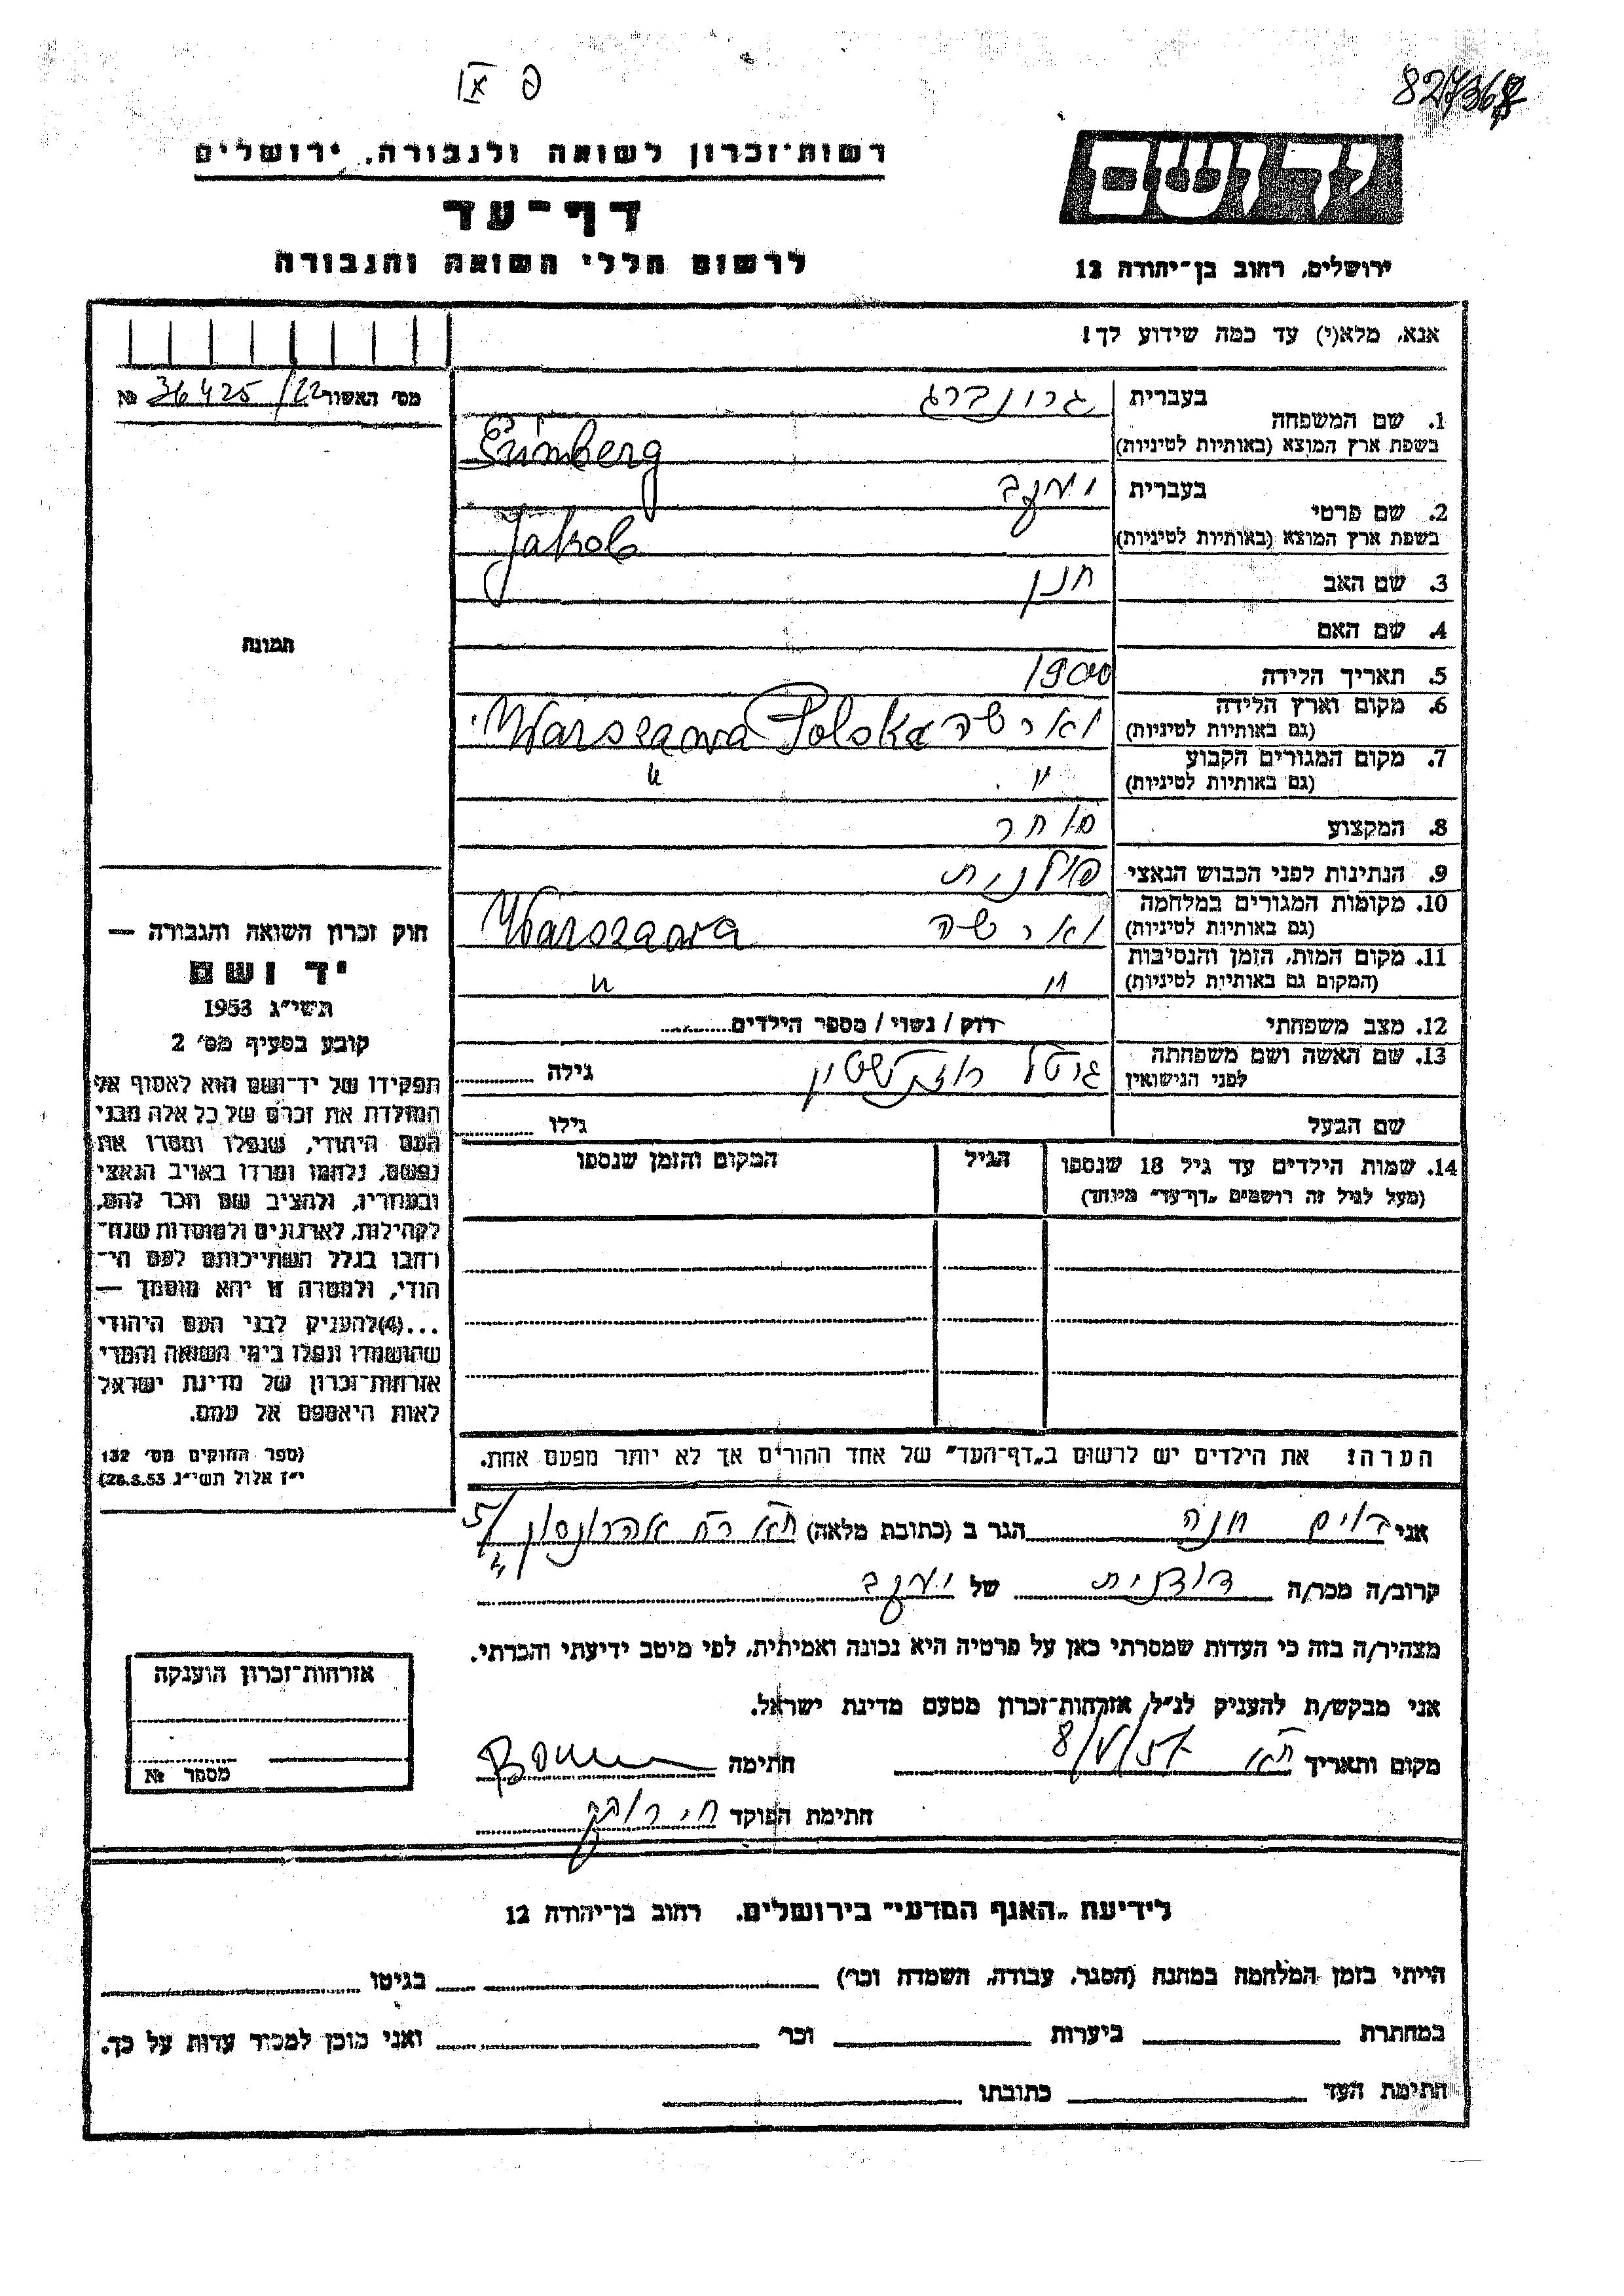 פ IX
827368
רשות־זכרון לשואה ולגבורה, ירושלים
דף־עד
לרשום חללי השואה והגבורה
יד ושם
ירושלים, רחוב בן־יהודה 12
אנא, מלא(י) עד כמה שידוע לך!
מס׳ האשור 36425/22 №
1. שם המשפחה
בעברית גרונברג
בשפת ארץ המוצא (באותיות לטיניות) Grünberg
2. שם פרטי
בעברית יעקב
בשפת ארץ המוצא (באותיות לטיניות) Jakob
3. שם האב חנן
4. שם האם
5. תאריך הלידה 1900
6. מקום וארץ הלידה
(גם באותיות לטיניות) וארשה Warszawa Polska
7. מקום המגורים הקבוע
(גם באותיות לטיניות) " "
8. המקצוע סוחר
9. הנתינות לפני הכבוש הנאצי פולנית
10. מקומות המגורים במלחמה
(גם באותיות לטיניות) וארשה Warszawa
11. מקום המות, הזמן והנסיבות
(המקום גם באותיות לטיניות) " "
12. מצב משפחתי רוק / נשוי / מספר הילדים
13. שם האשה ושם משפחתה
לפני הנישואין גיטל רוזנשטיין גילה
שם הבעל גילו
14. שמות הילדים עד גיל 18 שנספו הגיל המקום והזמן שנספו
(מעל לגיל זה רושמים „דף־עד״ מיוחד)
הערה: את הילדים יש לרשום ב„דף־העד״ של אחד ההורים אך לא יותר מפעם אחת.
תמונה
חוק זכרון השואה והגבורה —
יד ושם
תשי״ג 1953
קובע בסעיף מס׳ 2
תפקידו של יד־ושם הוא לאסוף אל
המולדת את זכרם של כל אלה מבני
העם היהודי, שנפלו ומסרו את
נפשם, נלחמו ומרדו באויב הנאצי
ובעוזריו, ולהציב שם וזכר להם,
לקהילות, לארגונים ולמוסדות שנח־
רבו בגלל השתייכותם לעם הי־
הודי, ולמטרה זו יהא מוסמך —
...(4)להעניק לבני העם היהודי
שהושמדו ונפלו בימי השואה והמרי
אזרחות־זכרון של מדינת ישראל
לאות היאספם אל עמם.
(ספר החוקים מס׳ 132
י״ז אלול תשי״ג 28.8.53)
אני בוים חנה הגר ב (כתובת מלאה) ת״א רח׳ אהרונסון 5/
קרוב/ה מכר/ה דודנית של יעקב
מצהיר/ה בזה כי העדות שמסרתי כאן על פרטיה היא נכונה ואמיתית, לפי מיטב ידיעתי והכרתי.
אני מבקש/ת להעניק לנ״ל, אזרחות־זכרון מטעם מדינת ישראל.
מקום ותאריך ת״א 8/V/57 חתימה
חתימת הפוקד
אזרחות־זכרון הוענקה
מספר №
לידיעת „האגף המדעי״ בירושלים. רחוב בן־יהודה 12
הייתי בזמן המלחמה במחנה (הסגר, עבודה, השמדה וכר) בגיטו
במחתרת ביערות וכר ואני מוכן למסור עדות על כך.
חתימת העד כתובתו